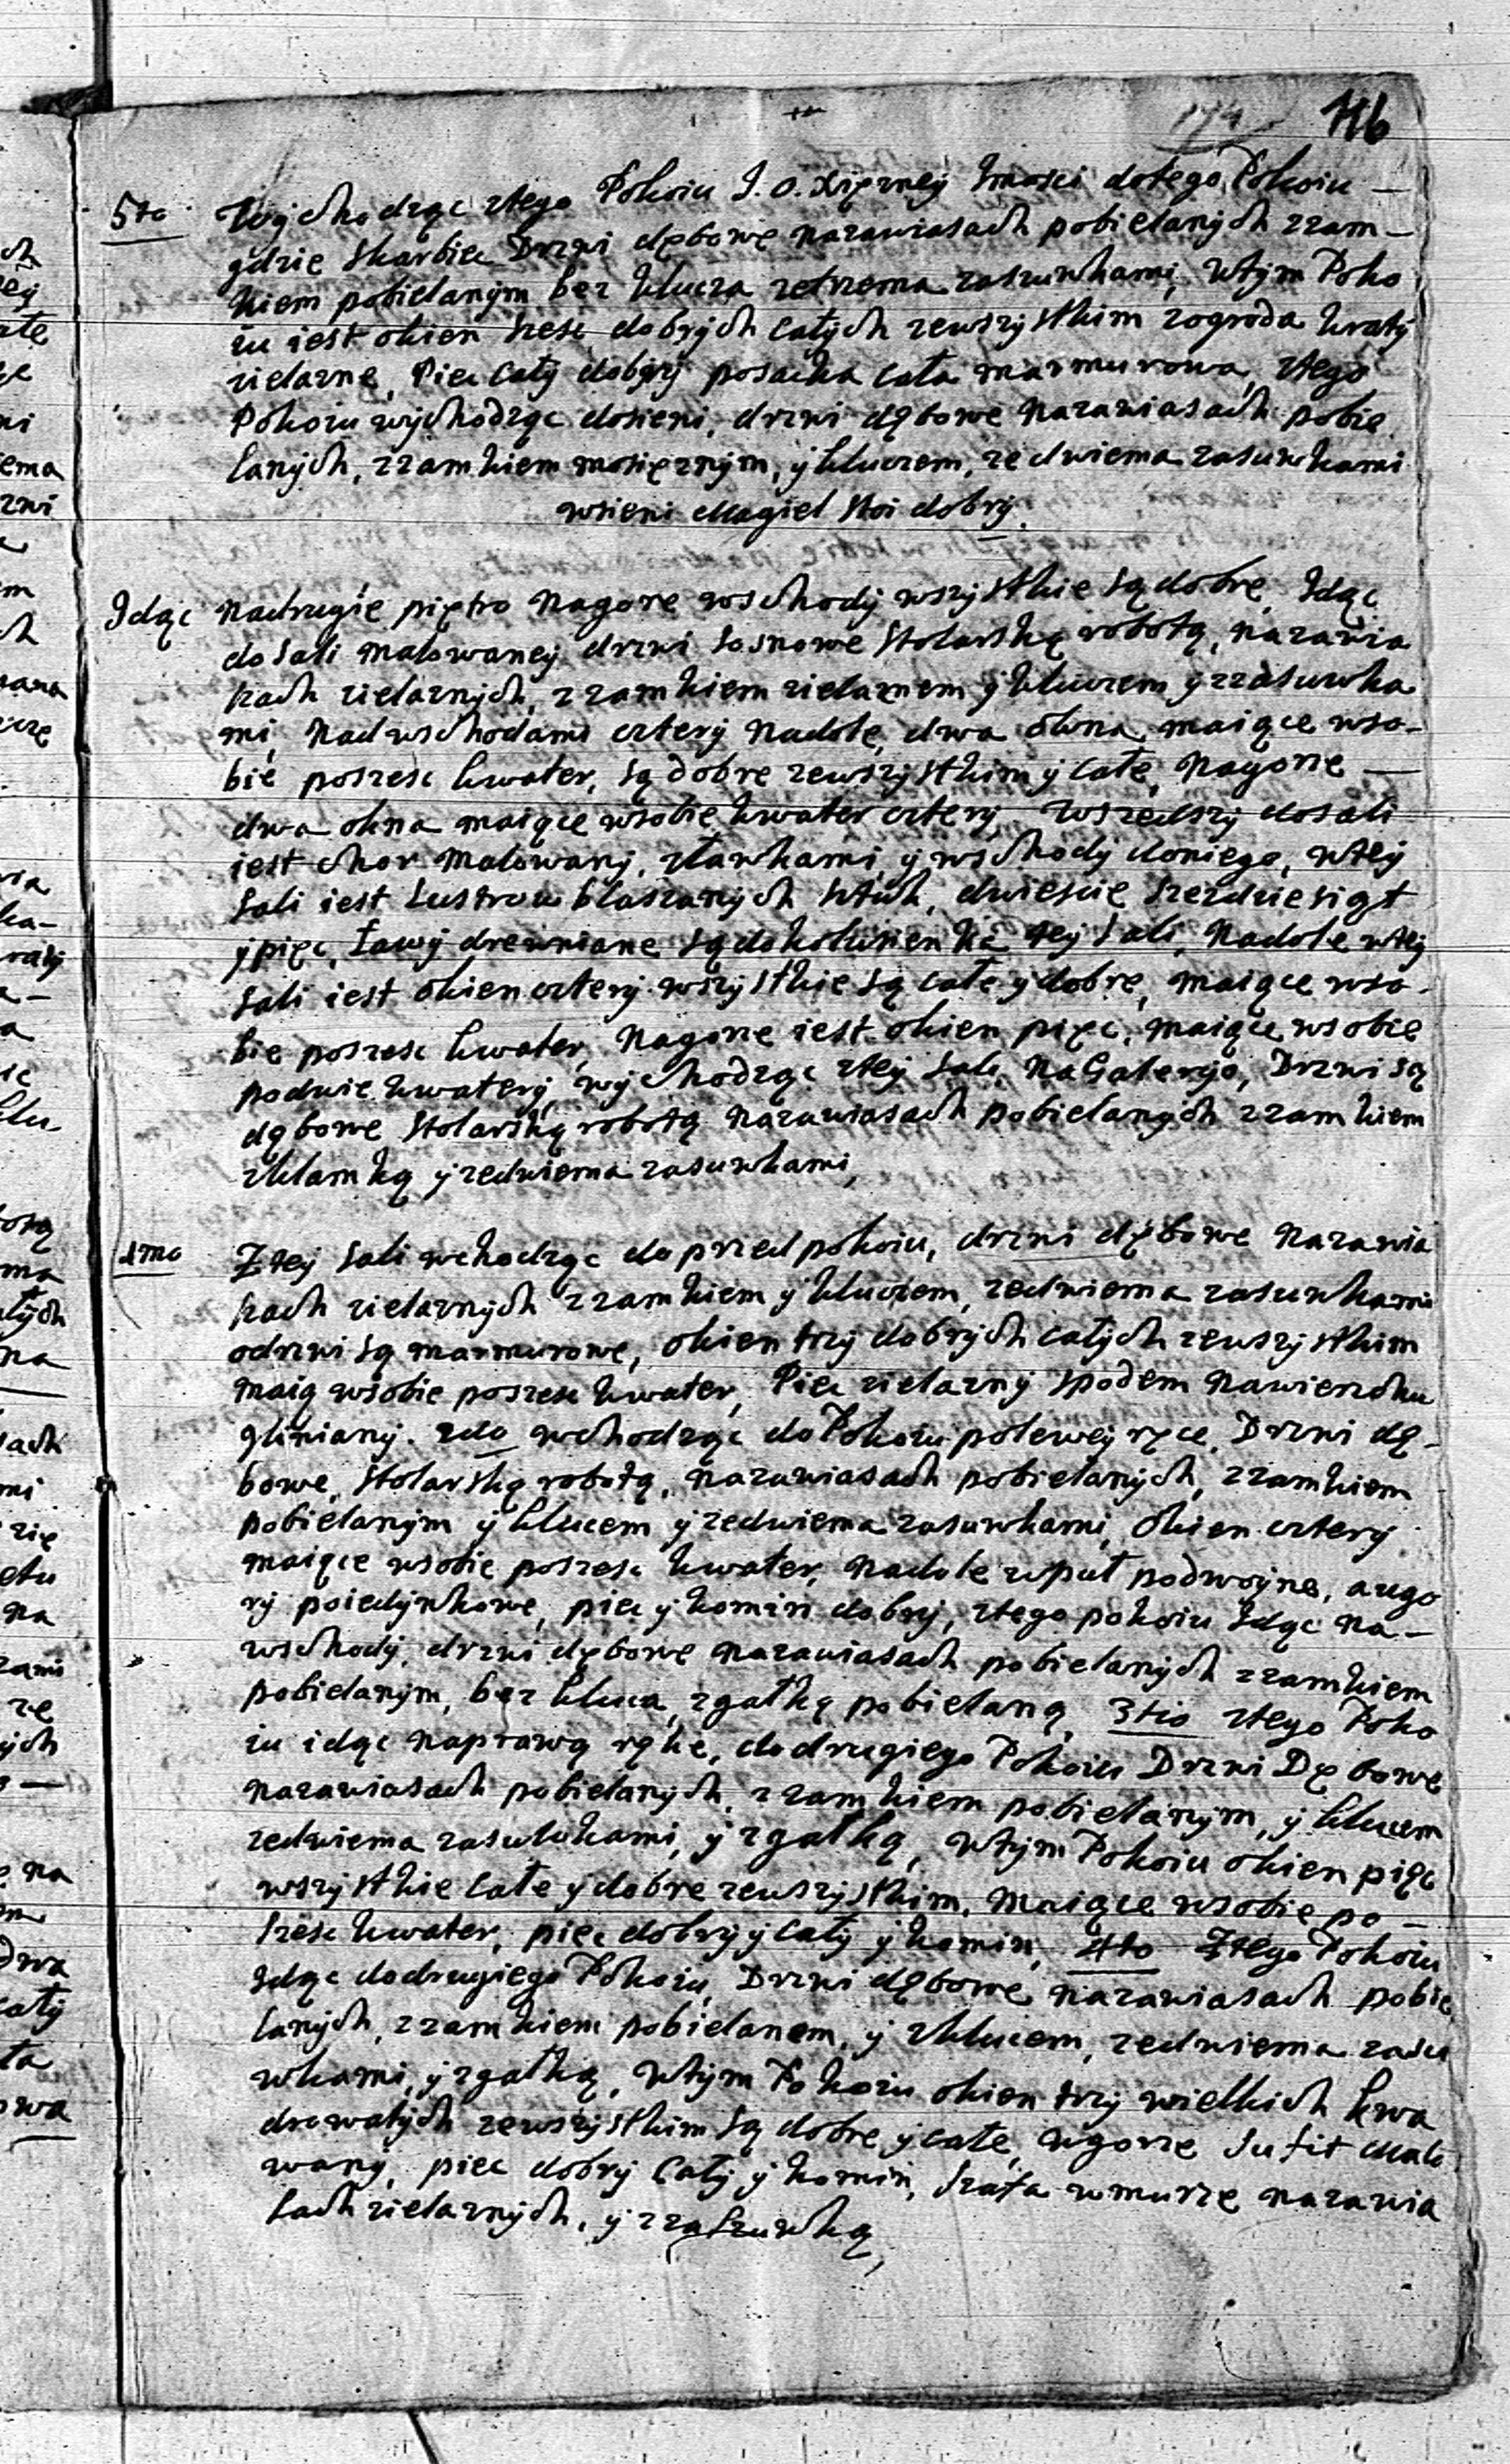 174 716
5to Wychodząc ztego Pokoiu J. O. Xięzney Jmosci dotego Pokoiu —
gdzie Skarbiec Drzwi dębowe nazawiasach pobielanych zzam—
kiem pobielanym bez klucza zetrzema zasuwkami, Wtym Poko
iu iest okien szesc dobrych całych zewszystkim zogroda kraty
zielazne, Piec cały dobry posacka cała marmurowa, ztego
Pokoiu wychodząc dosieni, drzwi dębowe nazawiasach pobie
lanych, zzamkiem mosięznym, y kluczem, ze dwiema zasuwkami
wsieni Magiel stoi dobry.
Jdąc nadrugie piętro nagore wschody wszystkie są dobre, Jdąc
do Sali malowaney drzwi sosnowe Stolarską robotą, nazawia
sach zielaznych, zzamkiem zielaznem y kluczem y zzasuwka
mi, Nadwschodami cztery nadole, dwa okna, maiące wso—
bie poszesc kwater, są dobre zewszystkim y całe, Nagorze —
dwa okna maiące wsobie kwater cztery wszedszy dosali
iest Chor malowany, zławkami, y wschody doniego, wtey
Sali iest Lustrow blaszanych sztuk, dwiescie szezdziesiąt
y pięc, Ławy drewniane są dokoła tey Sali, Nadole wtey
Sali iest okien cztery wszystkie są całe y dobre, maiące wso—
bie poszesc kwater, Nagorze iest okien pięc, maiące wsobie
podwie kwatery, wychodząc ztey Sali NaGaleryo, Drzwi są
dębowe Stolarską robotą nazawiasach pobielanych zzamkiem
zklamką y zedwiema zasuwkami,
1mo Ztey Sali wchodząc do przedpokoiu, drzwi dębowe nazawia
sach zielaznych zzamkiem y kluczem, zedwiema zasuwkami
odrzwi są marmurowe, okien trzy dobrych całych zewszystkim
maią wsobie poszesc kwater, Piec zielazny spodem nawierzchu
gliniany. 2do wchodząc do Pokoiu polewey ręce, Drzwi dę—
bowe, Stolarską robotą, nazawiasach pobielanych, zzamkiem
pobielanym y klucem y zedwiema zasuwkami, Okien cztery
maiące wsobie poszesc kwater, nadole wpuł podwoyne, augo
ry poiedynkowe, piec y komin dobry, ztego pokoiu Jdąc na—
wschody, drzwi dębowe nazawiasach pobielanych zzamkiem
pobielanym, bez kluca, zgałką pobielaną, 3tio ztego Poko
iu idąc naprawą rękę, do drugiego Pokoiu Drzwi Dębowe
nazawiasach pobielanych, zzamkiem pobielanym, y klucem
zedwiema zasuwkami, y zgałką, Wtym Pokoiu okien pięc
wszystkie całe y dobre zewszystkim, maiące wsobie po—
szesc kwater, piec dobry y cały y komin, 4to Ztego Pokoiu
Jdąc dodrugiego Pokoiu, Drzwi dębowe nazawiasach pobie
lanych, zzamkiem pobielanem, y zklucem, zedwiema zasu
wkami, y zgałką, Wtym Pokoiu okien trzy wielkich kwa
dratowych zewszystkim są dobre y całe, wgorze Sufit Malo
wany, piec dobry Cały y komin, Szafa wmurze nazawia
sach zielaznych, y zzaszuwką,